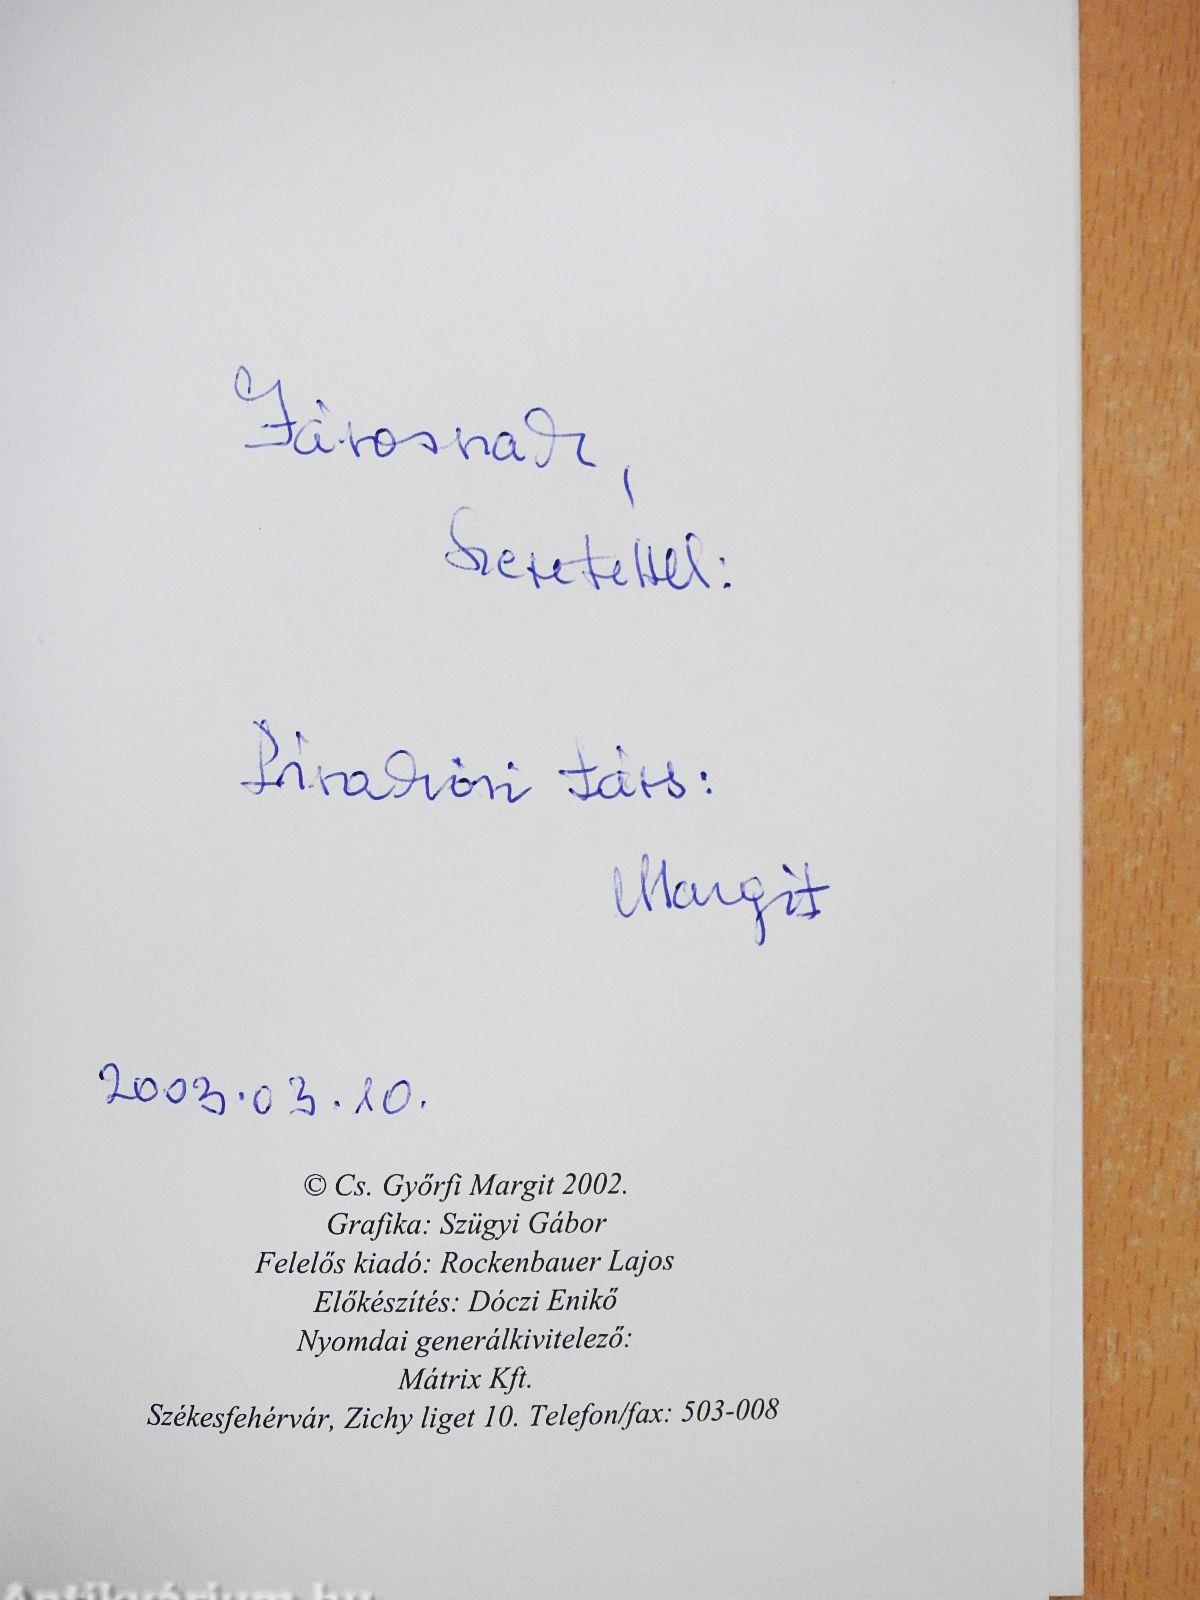 Szeretettel:
társ:
Margit
2003.03.10.
© Cs. Győrfi Margit 2002.
Grafika: Szügyi Gábor
Felelős kiadó: Rockenbauer Lajos
Előkészítés: Dóczi Enikő
Nyomdai generálkivitelező:
Mátrix Kft.
Székesfehérvár, Zichy liget 10. Telefon/fax: 503-008
Antikvárium.hu